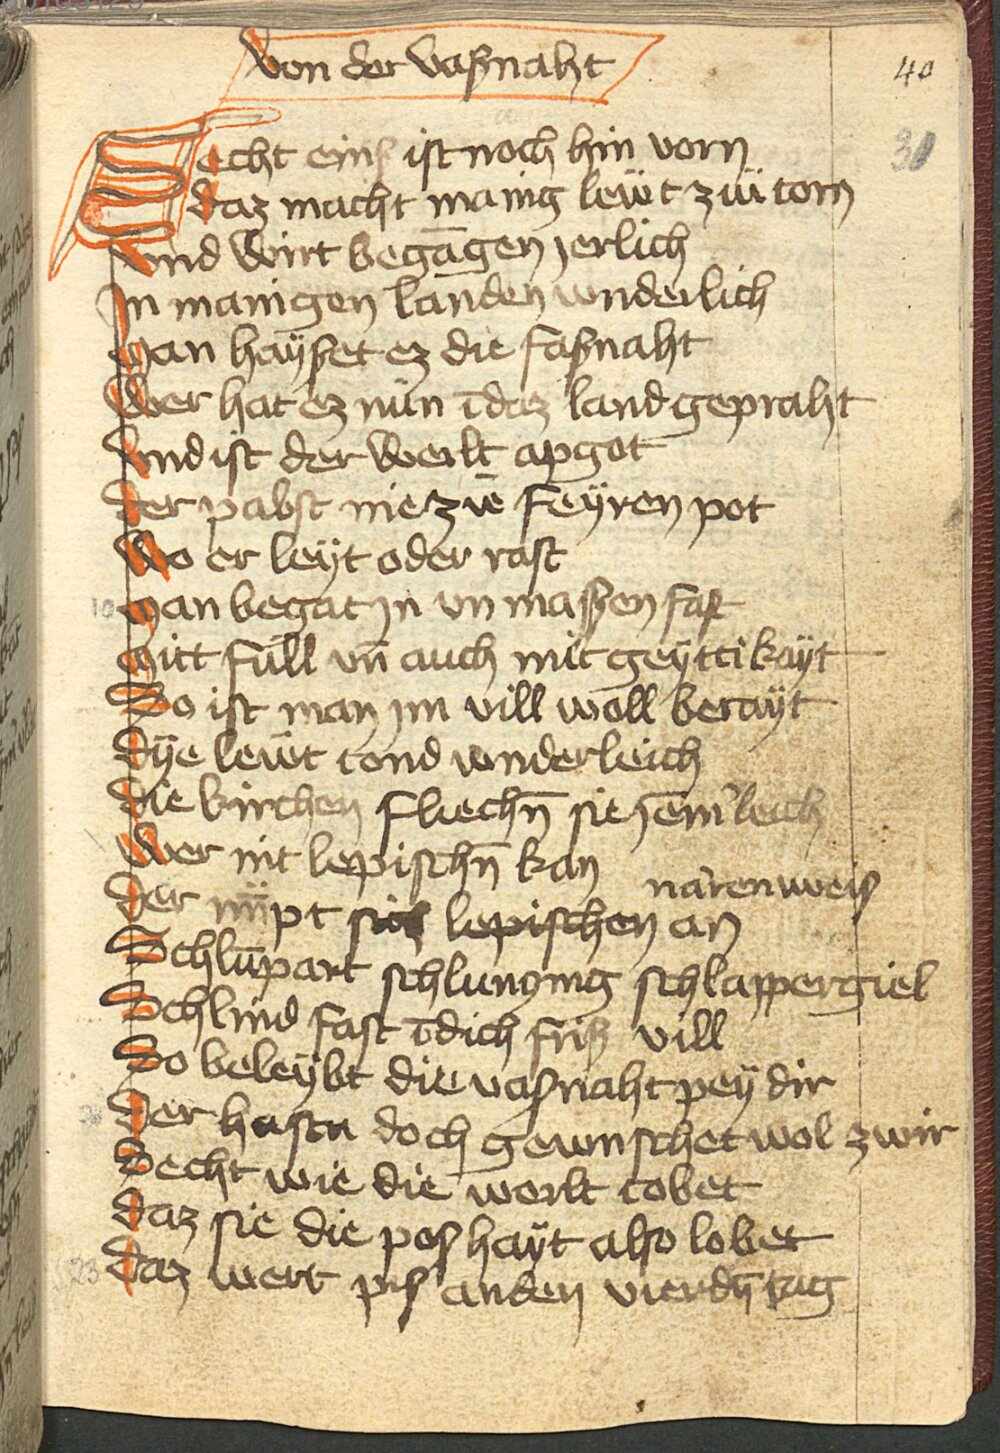 von der vaßnaht
40
30
Secht einß ist noch hin vorn
daz macht manig lewt zü torn
vnd wirt begāgen jerlich
Jn manigen landen wnderlich
Man haÿßet ez die faßnaht
Wer hat ez nün ī daz land gepraht
vnd ist der werlt apgot
der pabst nie zü feÿren pot
Wo er leÿt oder rast
10
Man begat jn vnmaßen fast
Mitt füll vn̄ auch mit geÿttikaÿt
So ist man jm vill woll beraÿt
dÿe lewt tond wnderleich
die kirchen fliechn̄ sie
Wer nit lepischn̄ kan
narenweiß
der nÿpt sich lepischen an
Schlūpart schlunging schlappergiel
Schlind fast ī dich friß vill
So beleÿbt die vaßnaht peÿ dir
der hastu doch gewnschet wol zwir
Secht wie die werlt tobet
daz sie die poßhaÿt also lobet
23
daz wert piß an den vierdn̄ tag